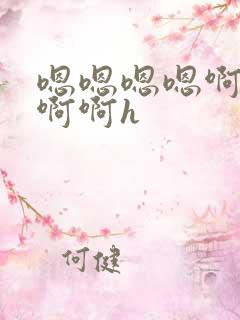 嗯嗯嗯嗯啊
啊啊h
何健